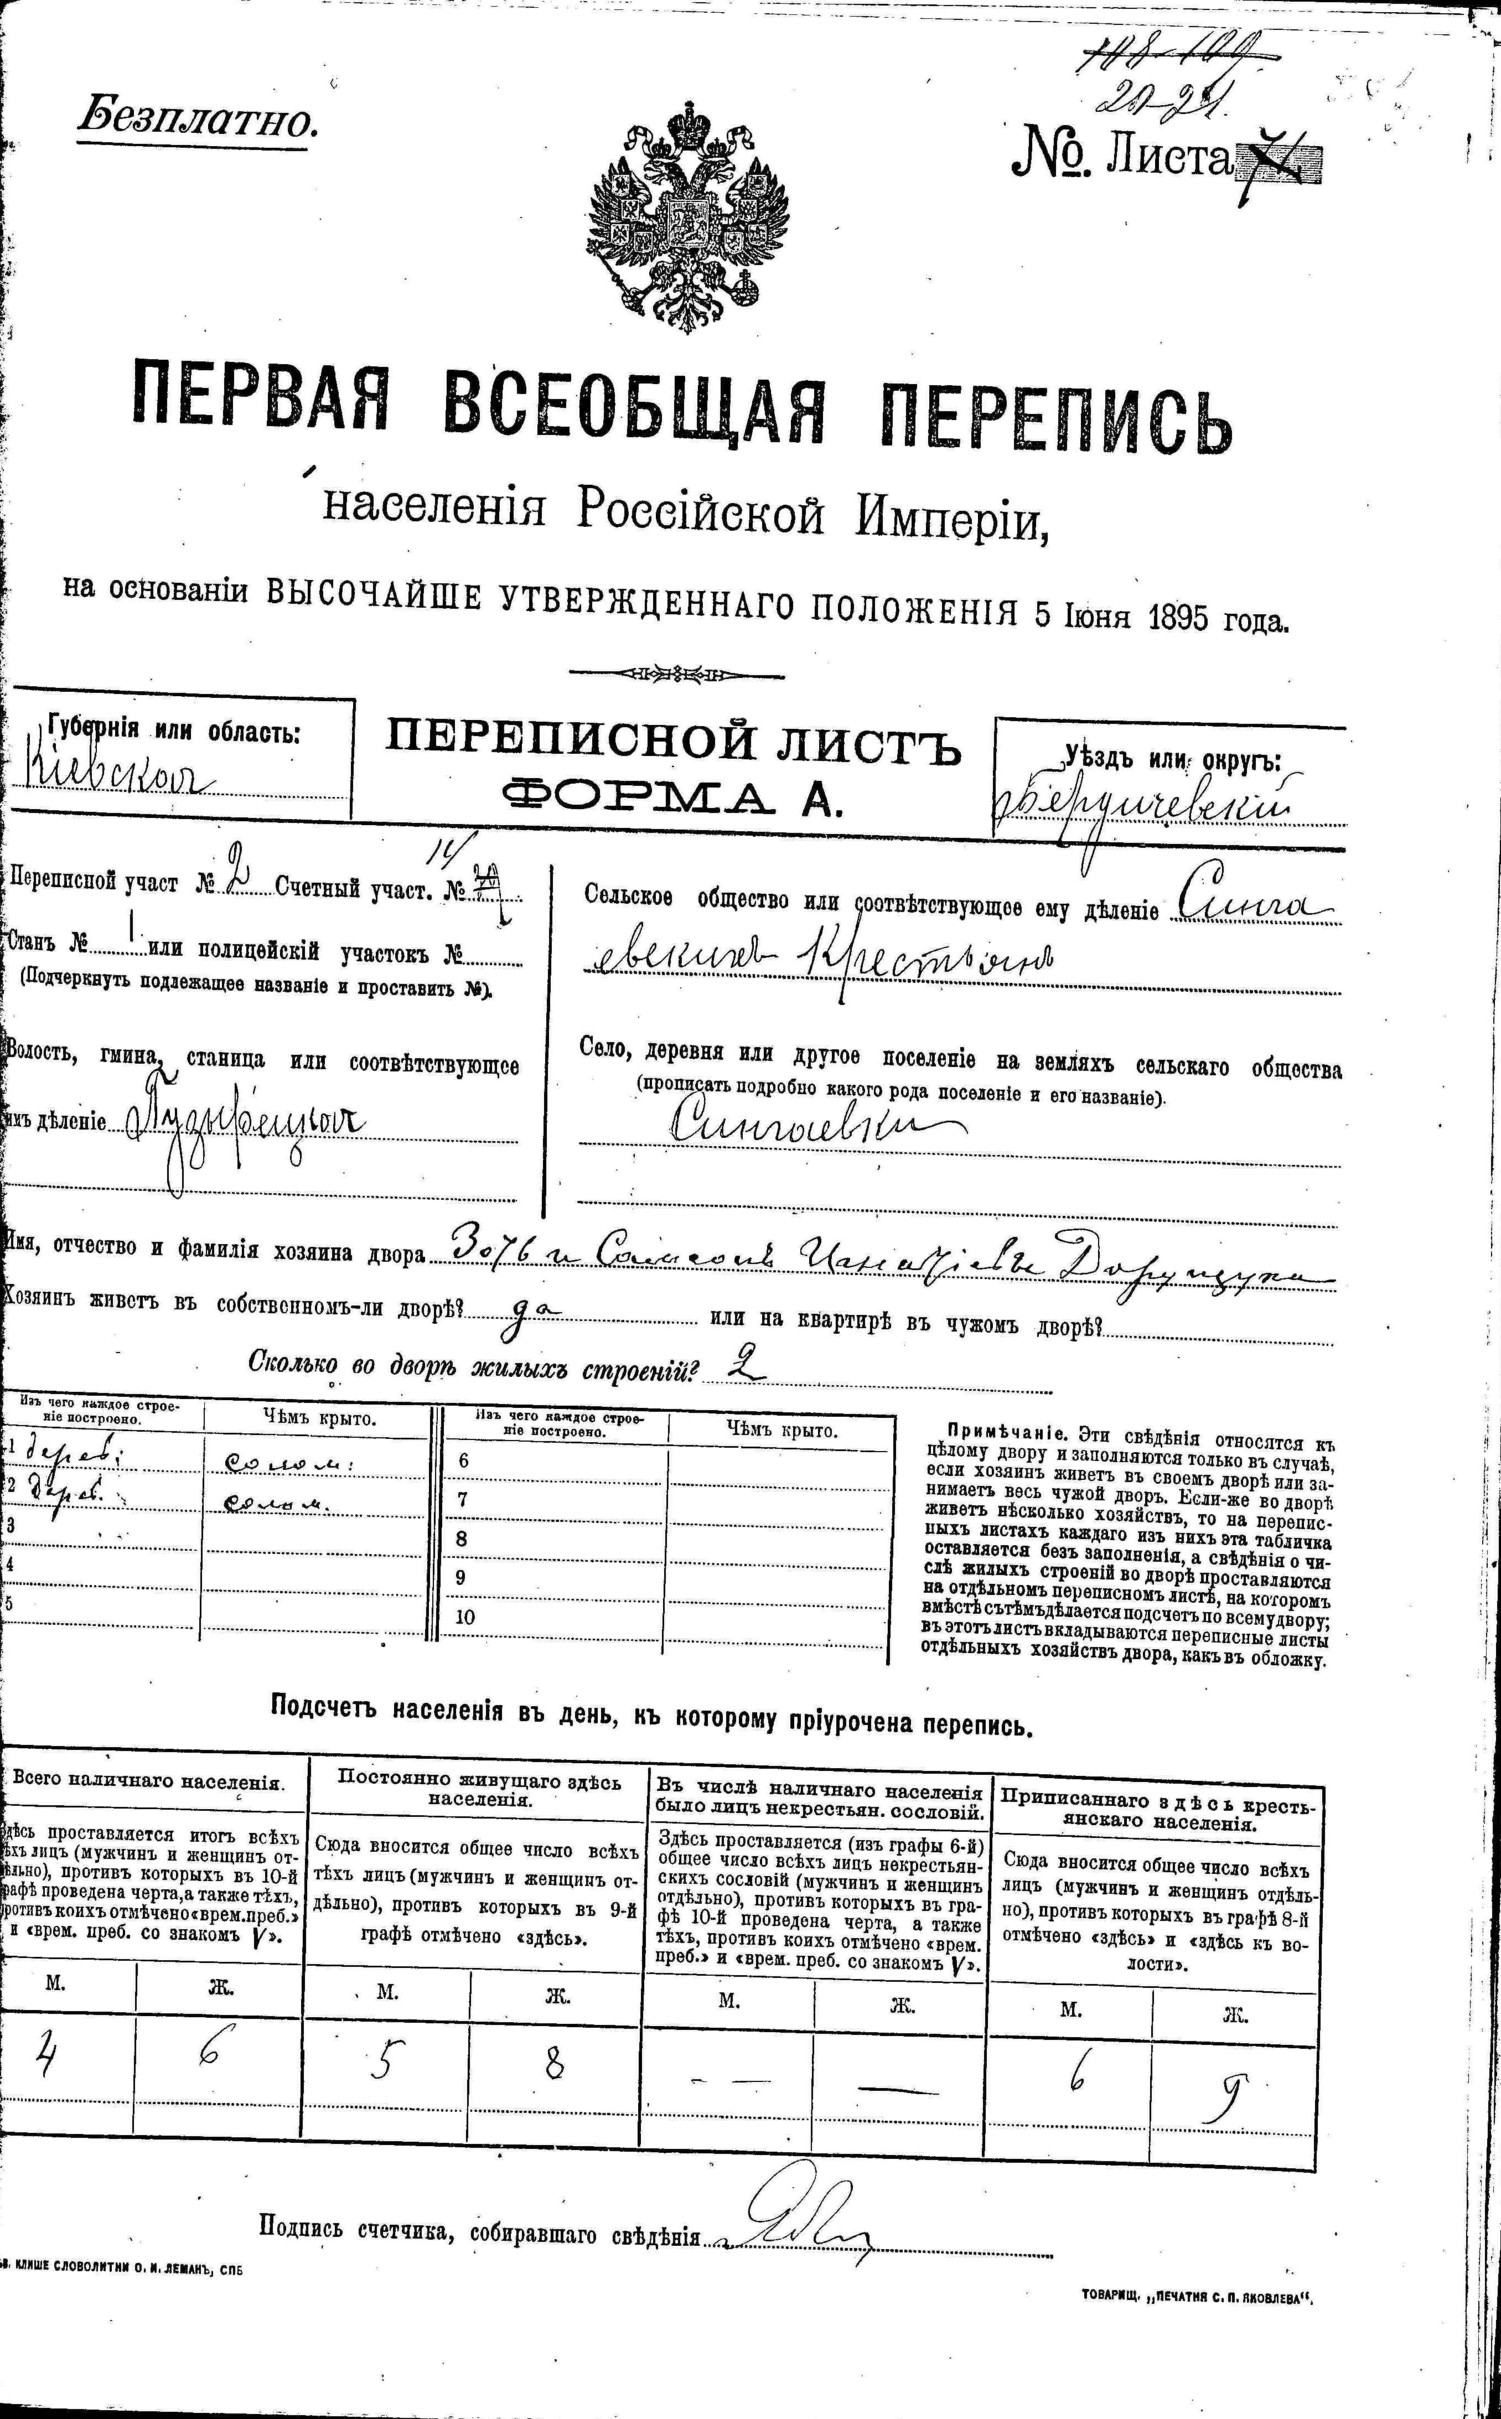 20-21.
Безплатно.
№. Листа
ПЕРВАЯ ВСЕОБЩАЯ ПЕРЕПИСЬ
населенія Россійской Имперіи,
на основаніи ВЫСОЧАЙШЕ УТВЕРЖДЕННАГО ПОЛОЖЕНІЯ 5 Іюня 1895 года.
Губернія или область:
Кіевская
ПЕРЕПИСНОЙ ЛИСТЪ
ФОРМА А.
Уѣздъ или округъ:
Бердичевскій
Переписной участ № 2 Счетный участ. № 14
Станъ № 1 или полицейскій участокъ №
(Подчеркнуть подлежащее названіе и проставить №).
Волость, гмина, станица или соотвѣтствующее
имъ дѣленіе Пузырецкая
Сельское общество или соотвѣтствующее ему дѣленіе Синга
евскихъ Крестьянъ
Село, деревня или другое поселеніе на земляхъ сельскаго общества
(прописать подробно какого рода поселеніе и его названіе).
Сингаевки
Имя, отчество и фамилія хозяина двора и Самсонъ
Хозяинъ живетъ въ собственномъ-ли дворѣ? да или на квартирѣ въ чужомъ дворѣ?
Сколько во дворѣ жилыхъ строеній? 2
Изъ чего каждое строе-
ніе построено.
Чѣмъ крыто.
Изъ чего каждое строе-
ніе построено.
Чѣмъ крыто.
1 дерев: солом: 6
2 дерев. солом. 7
3 8
4 9
5 10
Примѣчаніе. Эти свѣдѣнія относятся къ
цѣлому двору и заполняются только въ случаѣ,
если хозяинъ живетъ въ своемъ дворѣ или за-
нимаетъ весь чужой дворъ. Если-же во дворѣ
живетъ нѣсколько хозяйствъ, то на перепис-
ныхъ листахъ каждаго изъ нихъ эта табличка
оставляется безъ заполненія, а свѣдѣнія о чи-
слѣ жилыхъ строеній во дворѣ проставляются
на отдѣльномъ переписномъ листѣ, на которомъ
вмѣстѣ съ тѣмъ дѣлается подсчетъ по всему двору;
въ этотъ листъ вкладываются переписные листы
отдѣльныхъ хозяйствъ двора, какъ въ обложку.
Подсчетъ населенія въ день, къ которому пріурочена перепись.
Всего наличнаго населенія.
Здѣсь проставляется итогъ всѣхъ
тѣхъ лицъ (мужчинъ и женщинъ от-
дѣльно), противъ которыхъ въ 10-й
графѣ проведена черта, а также тѣхъ,
противъ коихъ отмѣчено «врем. преб.»
и «врем. преб. со знакомъ V».
Постоянно живущаго здѣсь
населенія.
Сюда вносится общее число всѣхъ
тѣхъ лицъ (мужчинъ и женщинъ от-
дѣльно), противъ которыхъ въ 9-й
графѣ отмѣчено «здѣсь».
Въ числѣ наличнаго населенія
было лицъ некрестьян. сословій.
Здѣсь проставляется (изъ графы 6-й)
общее число всѣхъ лицъ некрестьян-
скихъ сословій (мужчинъ и женщинъ
отдѣльно), противъ которыхъ въ гра-
фѣ 10-й проведена черта, а также
тѣхъ, противъ коихъ отмѣчено «врем.
преб.» и «врем. преб. со знакомъ V».
Приписаннаго здѣсь кресть-
янскаго населенія.
Сюда вносится общее число всѣхъ
лицъ (мужчинъ и женщинъ отдѣль-
но), противъ которыхъ въ графѣ 8-й
отмѣчено «здѣсь» и «здѣсь къ во-
лости».
М. Ж. М. Ж. М. Ж. М. Ж.
4 6 5 8 — — 6 9
Подпись счетчика, собиравшаго свѣдѣнія
КЛИШЕ СЛОВОЛИТНИ О. И. ЛЕМАНЪ, СПБ
ТОВАРИЩ. „ПЕЧАТНЯ С. П. ЯКОВЛЕВА“.